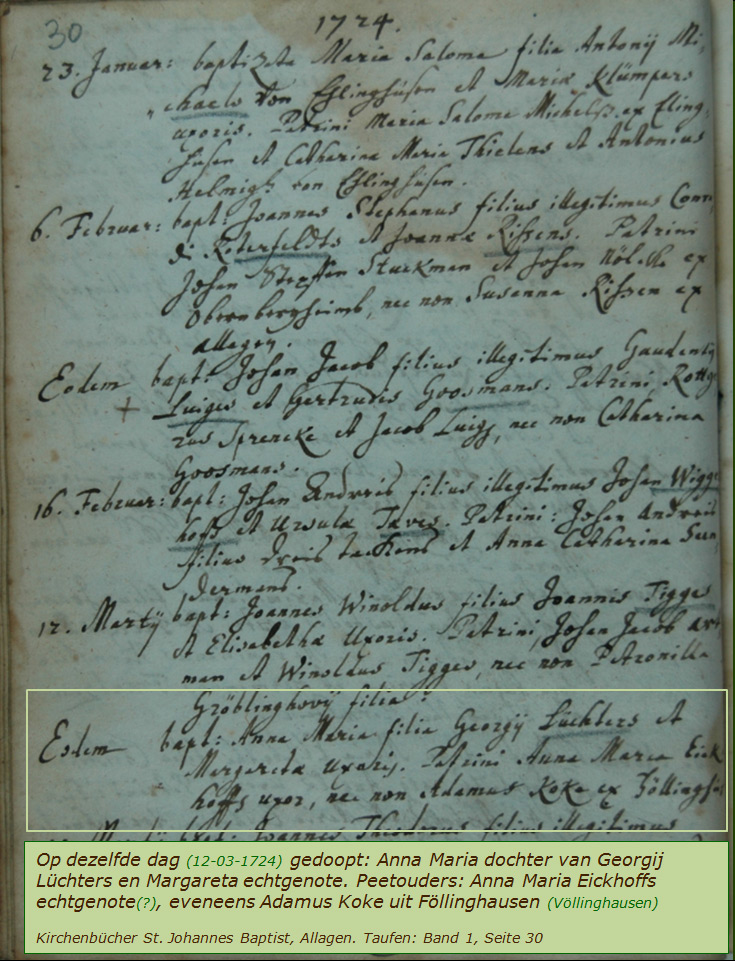 30
1724.
23. Januar: baptizata Maria Saloma filia Antonij Mi,
chaels von Ehlinghúsen et Mariæ Klümpers
uxoris. Patrini Maria Saloma Michelß ex Eling,
húsen et Catharina Maria Thielens et Antonius
Helmigß von Ehlinghúsen.
6. Februar: bapt: Joannes Stephanus filius illegitimus Conra
di Roterfeldts et Joannæ Rißens. Patrini
Johan Steffen Stuckman et Johan Nölcke ex
Obernbergheimb, nec non Susanna Rißen ex
allagen.
Eodem bapt: Johan Jacob filius illegitimus Gaudentij
Luiges et Gertrudis Goosmans. Patrini Rottge
rus Sprencke et Jacob Luigs, nec non Catharina
Goosmans.
16. Februar: bapt: Johan Andreis filius illegitimus Johan Wigge
hoff et Ursulæ Taves. Patrini: Johan Andreis
filius dreis et Anna Catharina Sun,
dermans.
12. Martij bapt: Joannes Winoldus filius Joannis Tigges
et Elisabethæ Uxoris. Patrini, Johan Jacob
man et Winoldus Tigges, nec non Petronilla
Gröblinghovij filia.
Eodem bapt: Anna Maria filia Georgij Lüchters et
Margaretæ uxoris. Patrini Anna Maria Eick
hoffs uxor, nec non Adamus Koke ex Föllinghú
Martij bapt: Joannes Theodorus filius illegitimus
Op dezelfde dag (12-03-1724) gedoopt: Anna Maria dochter van Georgij
Lüchters en Margareta echtgenote. Peetouders: Anna Maria Eickhoffs
echtgenote(?), eveneens Adamus Koke uit Föllinghausen (Völlinghausen)
Kirchenbücher St. Johannes Baptist, Allagen. Taufen: Band 1, Seite 30